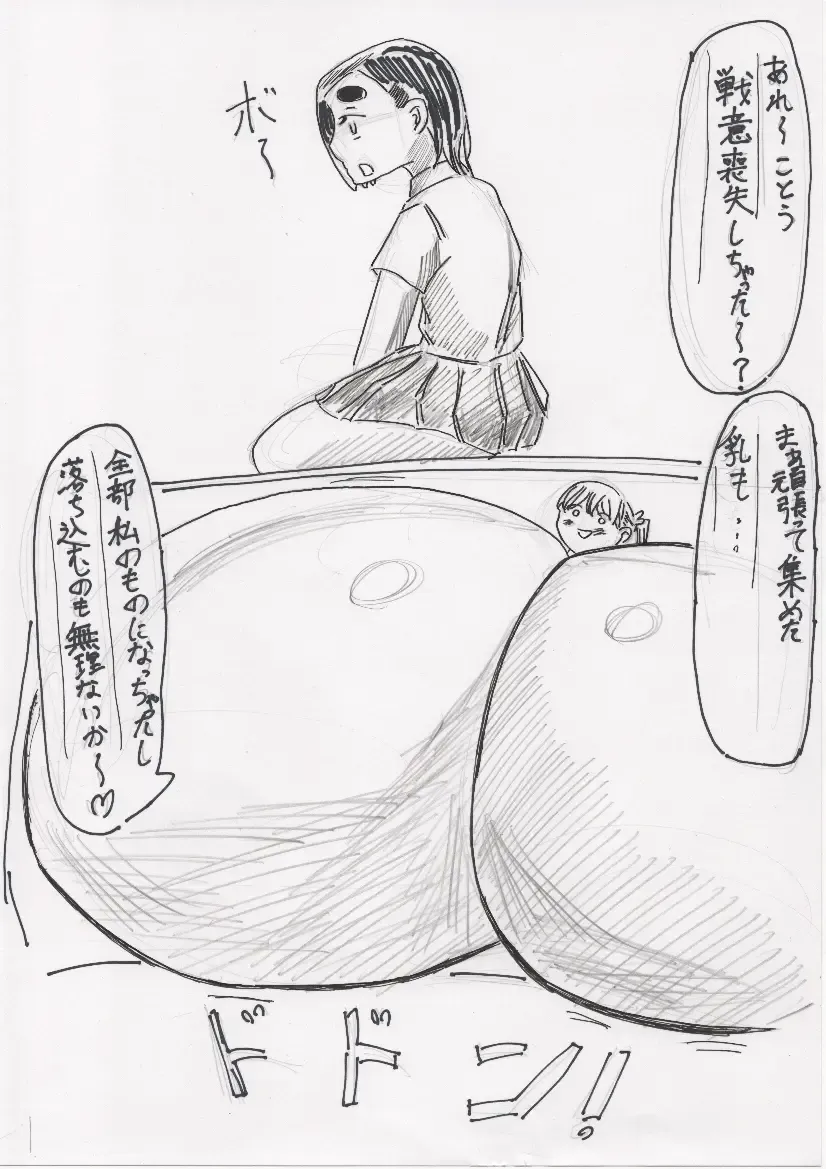 あれ〜ことう
戦意喪失しちゃった〜?
ボ〜
まぁ頑張って集めた
乳も...
全部私のものになっちゃたし
落ち込むのも無理ないか〜♡
ドドン!